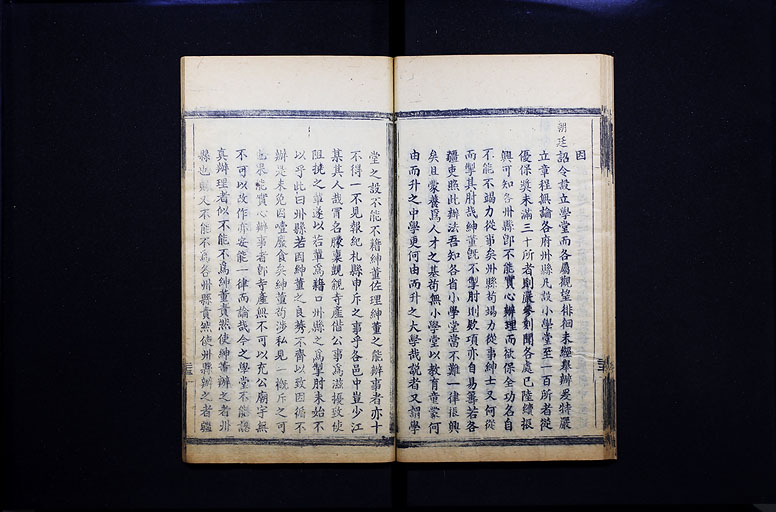 因
朝廷詔令設立學堂而各屬觀望徘徊未經舉辦爰特嚴
立章程無論各府州縣凡設小學堂至一百所者從
優保獎未滿三十所者則嚴參劾聞各處已陸續振
興可知各州縣卽不能實心辦理而欲保全功名自
不能不竭力從事矣州縣苟竭力從事紳士又何從
而掣其肘哉紳董旣不掣肘則款項亦自易籌若各
疆吏照此辦法吾知各省小學堂當不難一律振興
矣且蒙養爲人才之基苟無小學堂以教育童蒙何
由而升之中學更何由而升之大學哉說者又謂學
堂之設不能不藉紳董佐理紳董之能辦事者亦十
不得一不見報紀札縣申斥之事乎各邑中豈少江
某其人哉胃名朦稟覬覦寺產借公事爲滋擾致使
阻撓之輩遂以若輩爲藉口州縣之爲掣肘未始不
以乎此曰州縣若因紳董之良莠不齊以致因循不
辦是未免因噎廢食矣紳董苟涉私見一概斥之可
也果能實心辦事者卽寺產無不可以充公廟宇無
不可以改作亦安能一律而論哉今之學堂不能認
眞辦理者似不能不爲紳董責然使紳董辦之者州
縣也則又不能不爲各州縣責然使州縣辦之者疆